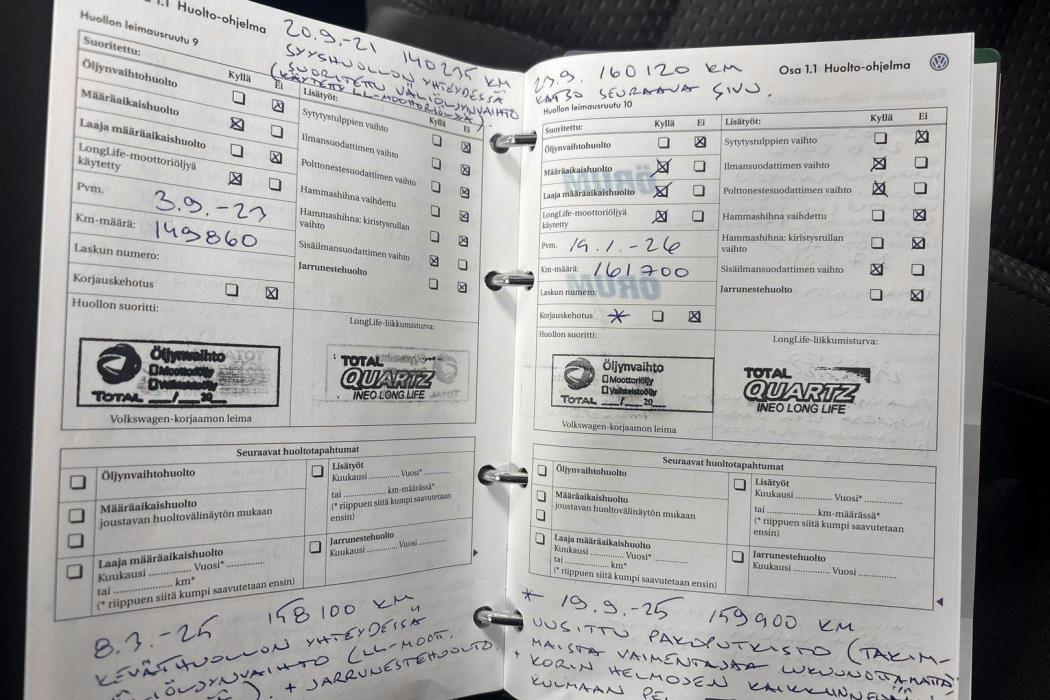 1.1 Huolto-ohjelma
20.9.-21 140235 KM
SYYSHUOLLON YHTEYDESSÄ
SUORITETTU VÄLIÖLJYNVAIHTO
(KÄYTETTY LL-MOOTTORIÖLJYÄ).
Huollon leimausruutu 9
Suoritettu:
Kyllä
Ei
Öljynvaihtohuolto
Määräaikaishuolto
Laaja määräaikaishuolto
LongLife-moottoriöljyä
käytetty
Pvm.
3.9.-23
Km-määrä:
149860
Laskun numero:
Korjauskehotus
Huollon suoritti:
Lisätyöt:
Kyllä
Ei
Sytytystulppien vaihto
Ilmansuodattimen vaihto
Polttonestesuodattimen vaihto
Hammashihna vaihdettu
Hammashihna: kiristysrullan
vaihto
Sisäilmansuodattimen vaihto
Jarrunestehuolto
LongLife-liikkumisturva:
Öljynvaihto
Moottoriöljy
Vaihteistoöljy
TOTAL __/__ 20__
TOTAL
QUARTZ
INEO LONG LIFE
Volkswagen-korjaamon leima
Seuraavat huoltotapahtumat
Öljynvaihtohuolto
Määräaikaishuolto
joustavan huoltovälinäytön mukaan
Laaja määräaikaishuolto
Kuukausi ............ Vuosi* ............
tai .................... km*
(* riippuen siitä kumpi saavutetaan ensin)
Lisätyöt
Kuukausi ............ Vuosi* ............
tai ............ km-määrässä*
(* riippuen siitä kumpi saavutetaan
ensin)
Jarrunestehuolto
Kuukausi ............ Vuosi ............
8.3.-25 158100 KM
KEVÄTHUOLLON YHTEYDESSÄ
+ JARRUNESTEHUOLTO.
Osa 1.1 Huolto-ohjelma
160120 KM
KATSO SEURAAVA SIVU.
Huollon leimausruutu 10
Suoritettu:
Kyllä
Ei
Öljynvaihtohuolto
Määräaikaishuolto
Laaja määräaikaishuolto
LongLife-moottoriöljyä
käytetty
Pvm.
19.1.-26
Km-määrä:
161700
Laskun numero:
Korjauskehotus *
Huollon suoritti:
ÖRUM
ÖRUM
Lisätyöt:
Kyllä
Ei
Sytytystulppien vaihto
Ilmansuodattimen vaihto
Polttonestesuodattimen vaihto
Hammashihna vaihdettu
Hammashihna: kiristysrullan
vaihto
Sisäilmansuodattimen vaihto
Jarrunestehuolto
LongLife-liikkumisturva:
Öljynvaihto
Moottoriöljy
Vaihteistoöljy
TOTAL __/__ 20__
TOTAL
QUARTZ
INEO LONG LIFE
Volkswagen-korjaamon leima
Seuraavat huoltotapahtumat
Öljynvaihtohuolto
Määräaikaishuolto
joustavan huoltovälinäytön mukaan
Laaja määräaikaishuolto
Kuukausi ............ Vuosi* ............
tai .................... km*
(* riippuen siitä kumpi saavutetaan ensin)
Lisätyöt
Kuukausi ............ Vuosi* ............
tai ............ km-määrässä*
(* riippuen siitä kumpi saavutetaan
ensin)
Jarrunestehuolto
Kuukausi ............ Vuosi ............
* 19.9.-25 159900 KM
UUSITTU PAKOPUTKISTO (TAKIM-
MAISTA VAIMENTAJAA LUKUUNOTTAMATTA
+ KORIN HELMOJEN
KULMAAN